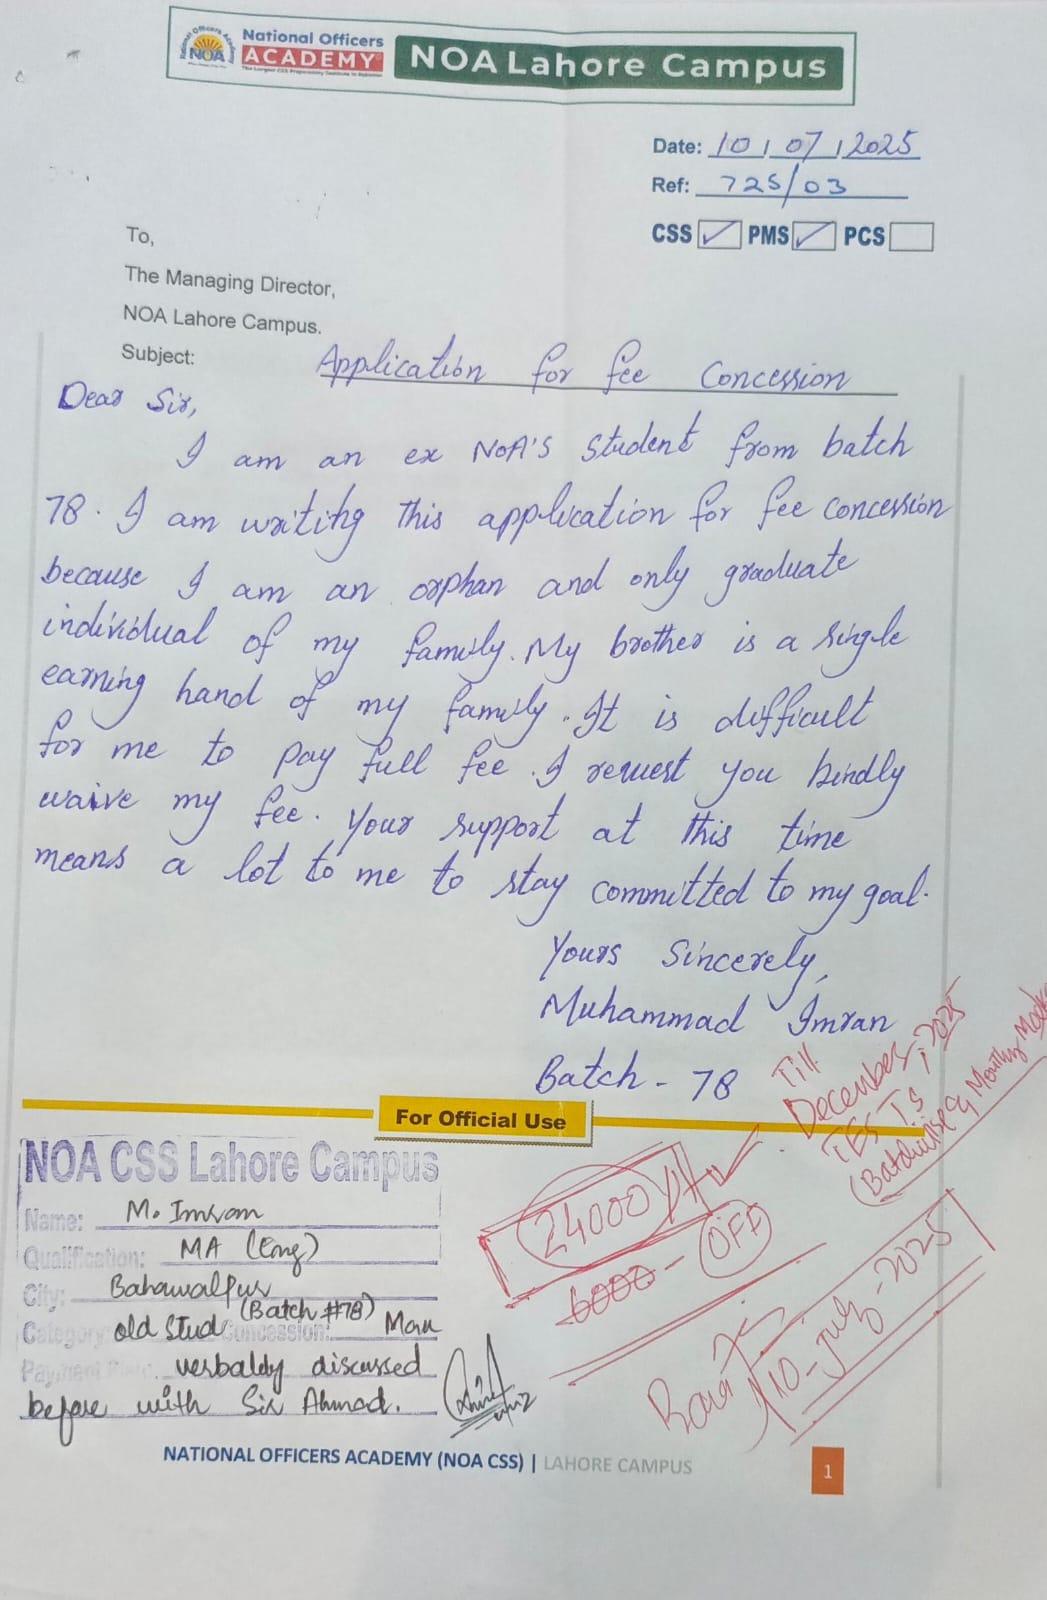 National Officers
ACADEMY
NOA
NOA Lahore Campus
Date: 10/07/2025
Ref: 725/03
CSS ✓ PMS ✓ PCS
To,
The Managing Director,
NOA Lahore Campus.
Subject: Application for fee Concession
Dear Sir,
I am an ex NOA'S Student from batch
78. I am writing this application for fee concession
because I am an orphan and only graduate
individual of my family. My brother is a single
earning hand of my family. It is difficult
for me to pay full fee. I request you kindly
waive my fee. Your support at this time
means a lot to me to stay committed to my goal.
Yours Sincerely,
Muhammad Imran
Batch - 78
Till
December, 2025
TESTS
(Batchwise & Monthly Mocks
For Official Use
NOA CSS Lahore Campus
Name: M. Imran
Qualification: MA (Eng)
City: Bahawalpur
Category: old Stud (Batch #78) Concession: Max
Payment Plan: verbaldy discussed
before with Sir Ahmad.
24000
6000 - OFF
10-July-2025
NATIONAL OFFICERS ACADEMY (NOA CSS) | LAHORE CAMPUS
1